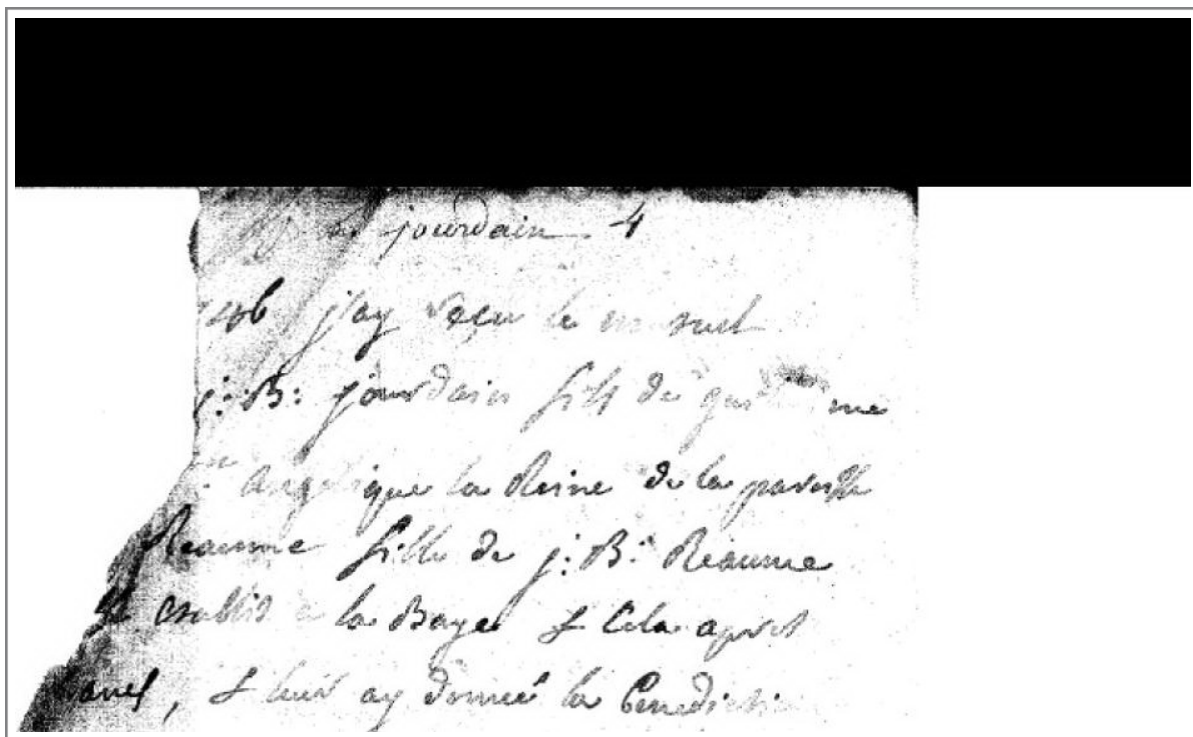 jourdain 4
j'ay reçu le mutuel
j: B: jourdain fils de
angelique la Reine de la paroisse
Reaume fille de j: B: Reaume
et establis a la Baye & cela apres
& leur ay donné la Benediction